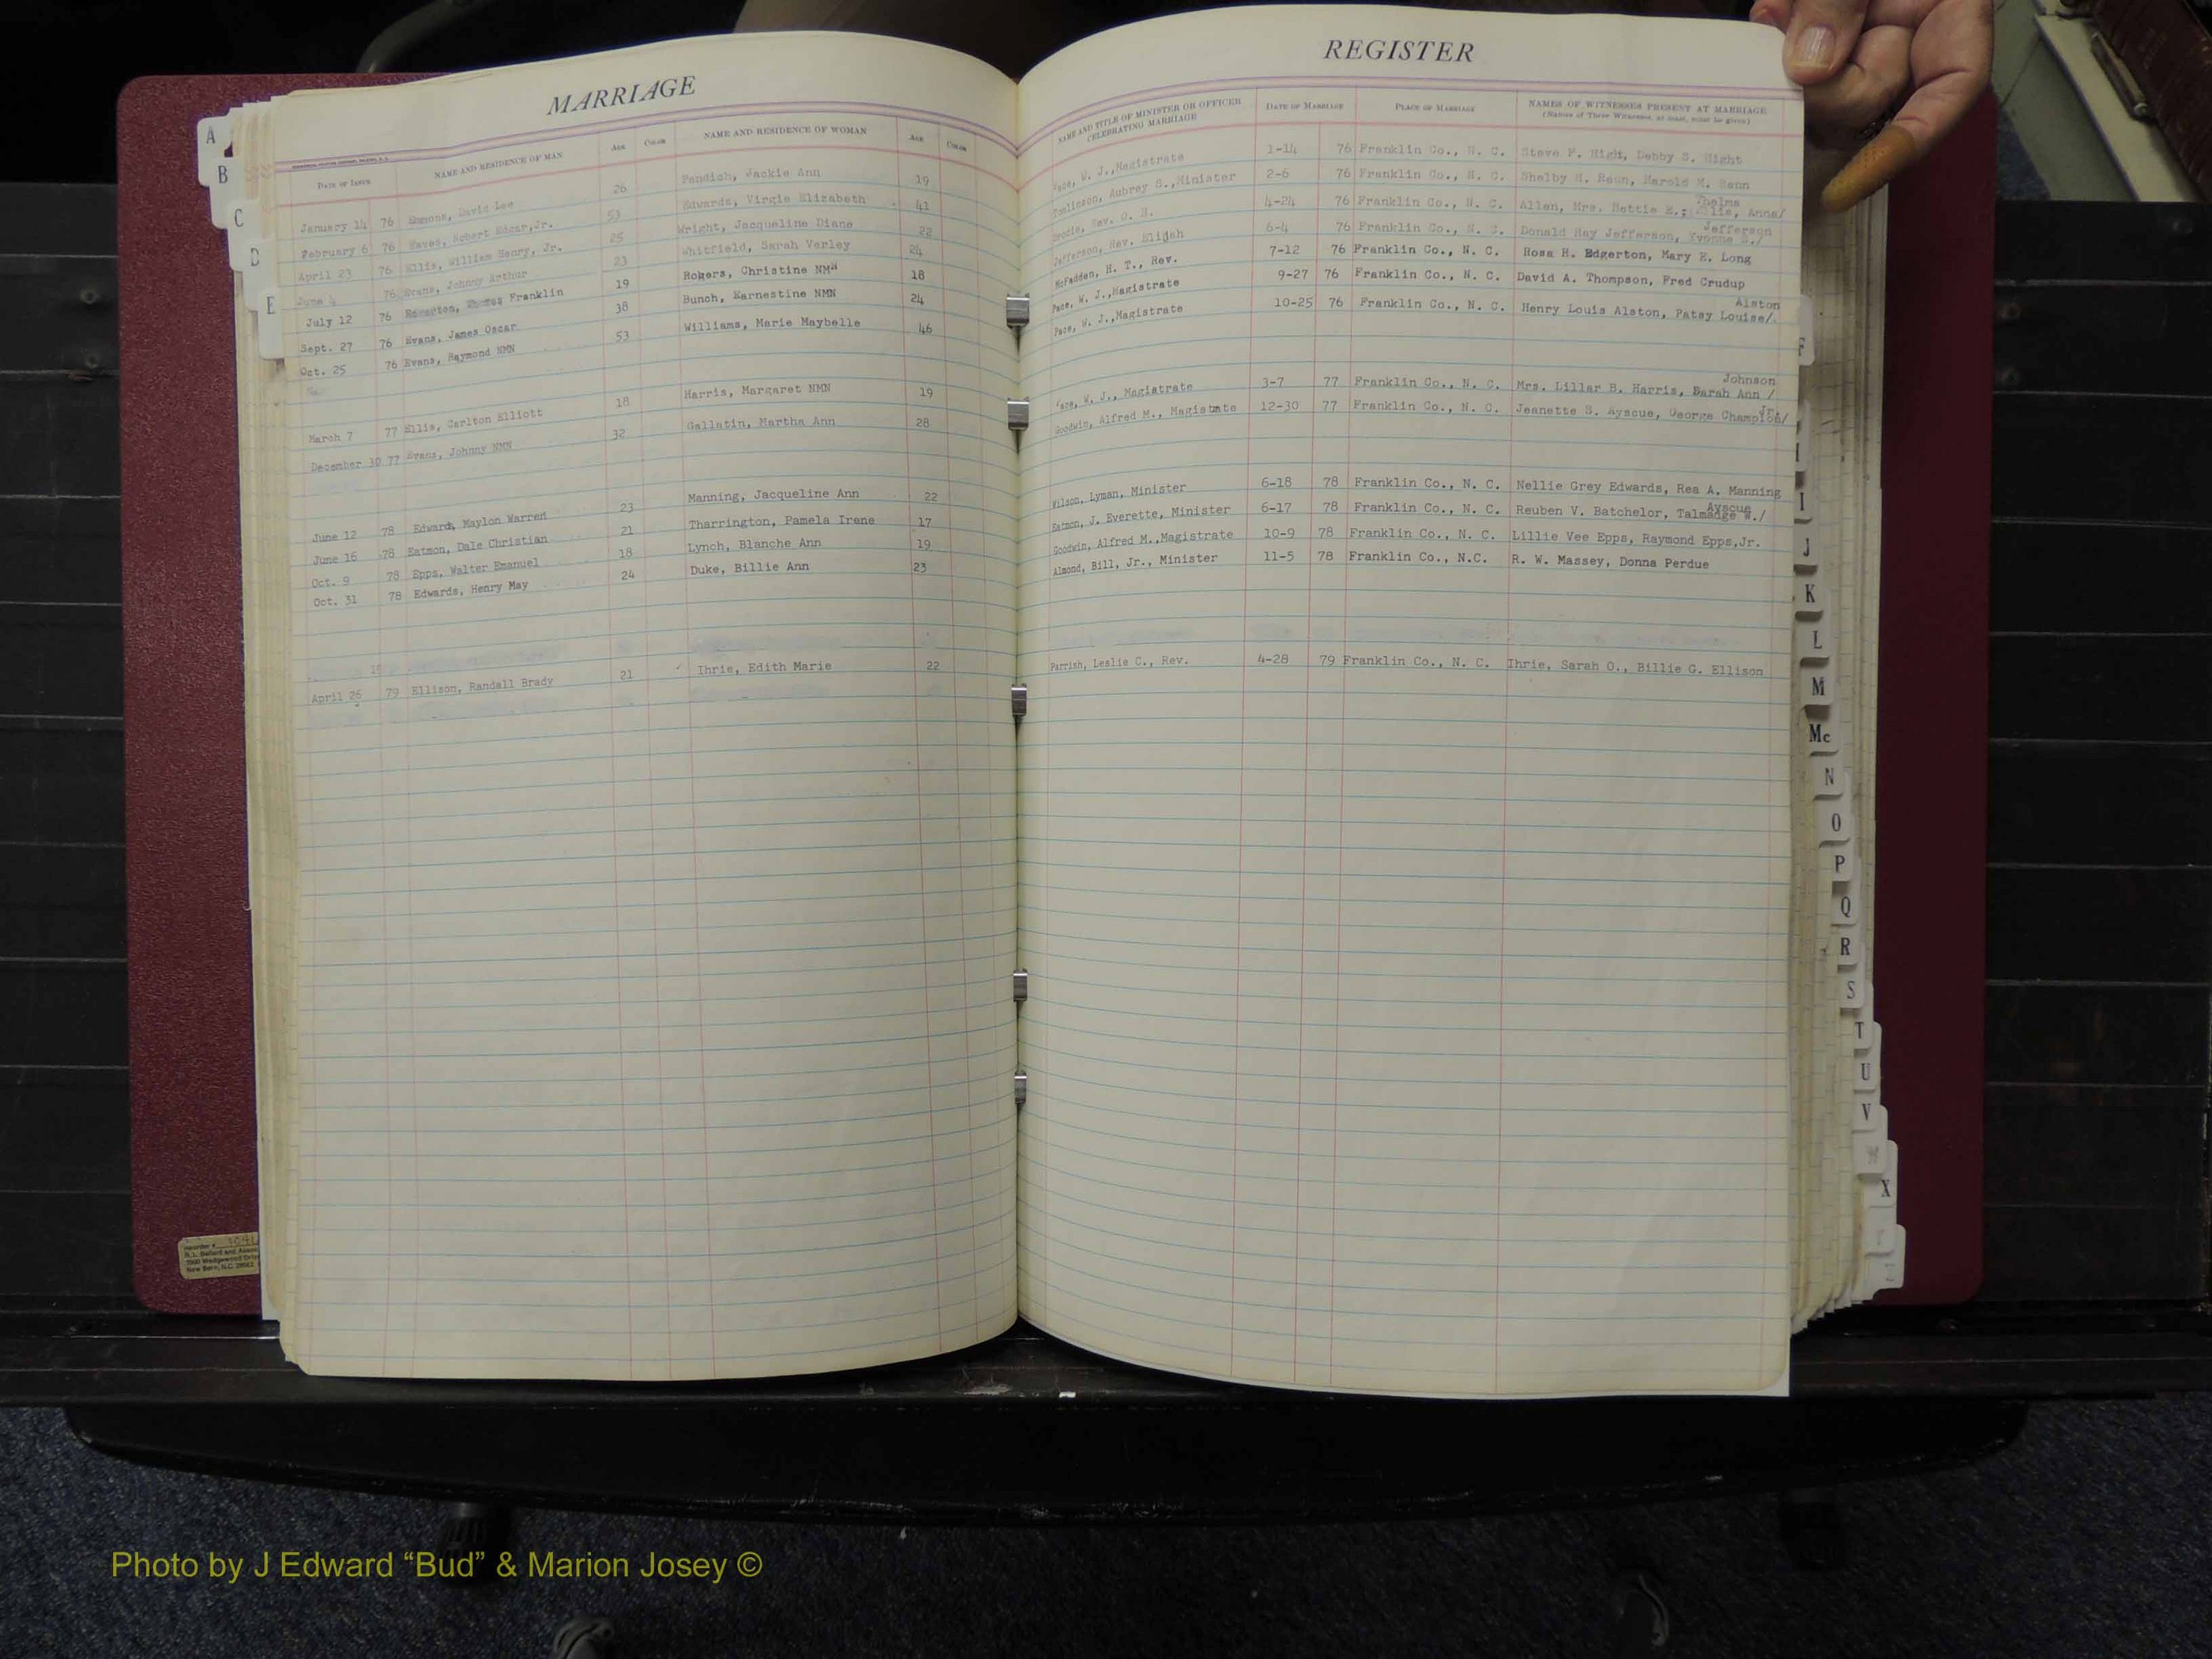 MARRIAGE
DATE OF ISSUE NAME AND RESIDENCE OF MAN AGE COLOR NAME AND RESIDENCE OF WOMAN AGE COLOR
January 14 76 Emmons, David Lee 26 Pendich, Jackie Ann 19
February 6 76 Eaves, Robert Edgar,Jr. 53 Edwards, Virgie Elizabeth 41
April 23 76 Ellis, William Henry, Jr. 25 Wright, Jacqueline Diane 22
June 4 76 Evans, Johnny Arthur 23 Whitfield, Sarah Verley 24
July 12 76 Franklin 19 Rogers, Christine NMN 18
Sept. 27 76 Evans, James Oscar 38 Bunch, Earnestine NMN 24
Oct. 25 76 Evans, Raymond NMN 53 Williams, Marie Maybelle 46
March 7 77 Ellis, Carlton Elliott 18 Harris, Margaret NMN 19
December 30 77 Evans, Johnny NMN 32 Gallatin, Martha Ann 28
June 12 78 Edwards, Maylon Warren 23 Manning, Jacqueline Ann 22
June 16 78 Eatmon, Dale Christian 21 Tharrington, Pamela Irene 17
Oct. 9 78 Epps, Walter Emanuel 18 Lynch, Blanche Ann 19
Oct. 31 78 Edwards, Henry May 24 Duke, Billie Ann 23
April 26 79 Ellison, Randall Brady 21 Ihrie, Edith Marie 22
REGISTER
NAME AND TITLE OF MINISTER OR OFFICER CELEBRATING MARRIAGE DATE OF MARRIAGE PLACE OF MARRIAGE NAMES OF WITNESSES PRESENT AT MARRIAGE
(Names of Three Witnesses, at least, must be given)
Pace, W. J.,Magistrate 1-14 76 Franklin Co., N. C. Steve F. High, Debby S. Hight
Tomlinson, Aubrey S.,Minister 2-6 76 Franklin Co., N. C. Shelby H. Renn, Harold M. Renn
Thelma
Brodie, Rev. O. H. 4-24 76 Franklin Co., N. C. Allen, Mrs. Hettie E.; Anna/
Jefferson
Jefferson, Rev. Elijah 6-4 76 Franklin Co., N. C. Donald Ray Jefferson, Yvonne S./
McFadden, H. T., Rev. 7-12 76 Franklin Co., N. C. Rosa H. Edgerton, Mary E. Long
Pace, W. J.,Magistrate 9-27 76 Franklin Co., N. C. David A. Thompson, Fred Crudup
Alston
Pace, W. J.,Magistrate 10-25 76 Franklin Co., N. C. Henry Louis Alston, Patsy Louise/
Johnson
Pace, W. J., Magistrate 3-7 77 Franklin Co., N. C. Mrs. Lillar B. Harris, Sarah Ann /
Jr.
Goodwin, Alfred M., Magistrate 12-30 77 Franklin Co., N. C. Jeanette S. Ayscue, George Champion/
Wilson, Lyman, Minister 6-18 78 Franklin Co., N. C. Nellie Grey Edwards, Rea A. Manning
Ayscue
Eatmon, J. Everette, Minister 6-17 78 Franklin Co., N. C. Reuben V. Batchelor, Talmadge W./
Goodwin, Alfred M.,Magistrate 10-9 78 Franklin Co., N. C. Lillie Vee Epps, Raymond Epps,Jr.
Almond, Bill, Jr., Minister 11-5 78 Franklin Co., N.C. R. W. Massey, Donna Perdue
Parrish, Leslie C., Rev. 4-28 79 Franklin Co., N. C. Ihrie, Sarah O., Billie G. Ellison
A
B
C
D
E
F
I
J
K
L
M
Mc
N
O
P
Q
R
S
T
U
V
W
X
New Bern, N.C.
Photo by J Edward “Bud” & Marion Josey ©